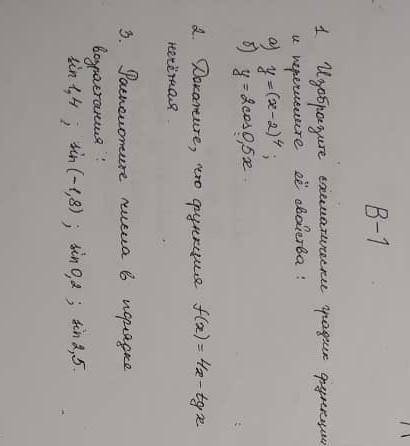 В-1
1 Изобразите схематически график функции
и перечислите её свойства:
а) y = (x-2)⁴;
б) y = 2cos0,5x.
2. Докажите, что функция f(x) = 4x - tgx
нечётная.
3. Расположите числа в порядке
возрастания:
sin 1,4; sin(-1,8); sin 0,2; sin 2,5.